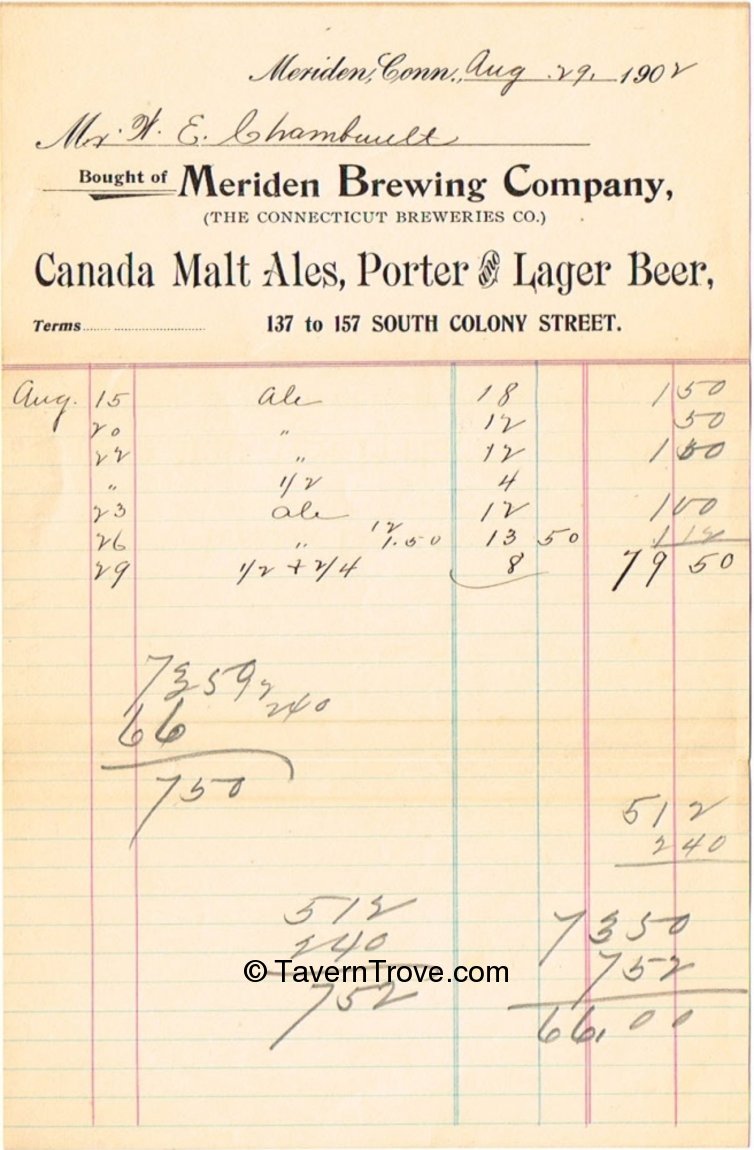 Meriden, Conn., Aug 29. 1902
Mr. W. E.
Bought of Meriden Brewing Company,
(THE CONNECTICUT BREWERIES CO.)
Canada Malt Ales, Porter and Lager Beer,
Terms 137 to 157 SOUTH COLONY STREET.
Aug. 15 Ale 18 1 50
20 " 12 50
22 " 12 1
" 1/2 4
23 Ale 12 1 00
26 " 12 1.50 13 50 1 12
29 1/2 + 2/4 8 79 50
240
66
750
512
240
512
240
752
7350
752
66.00
© TavernTrove.com